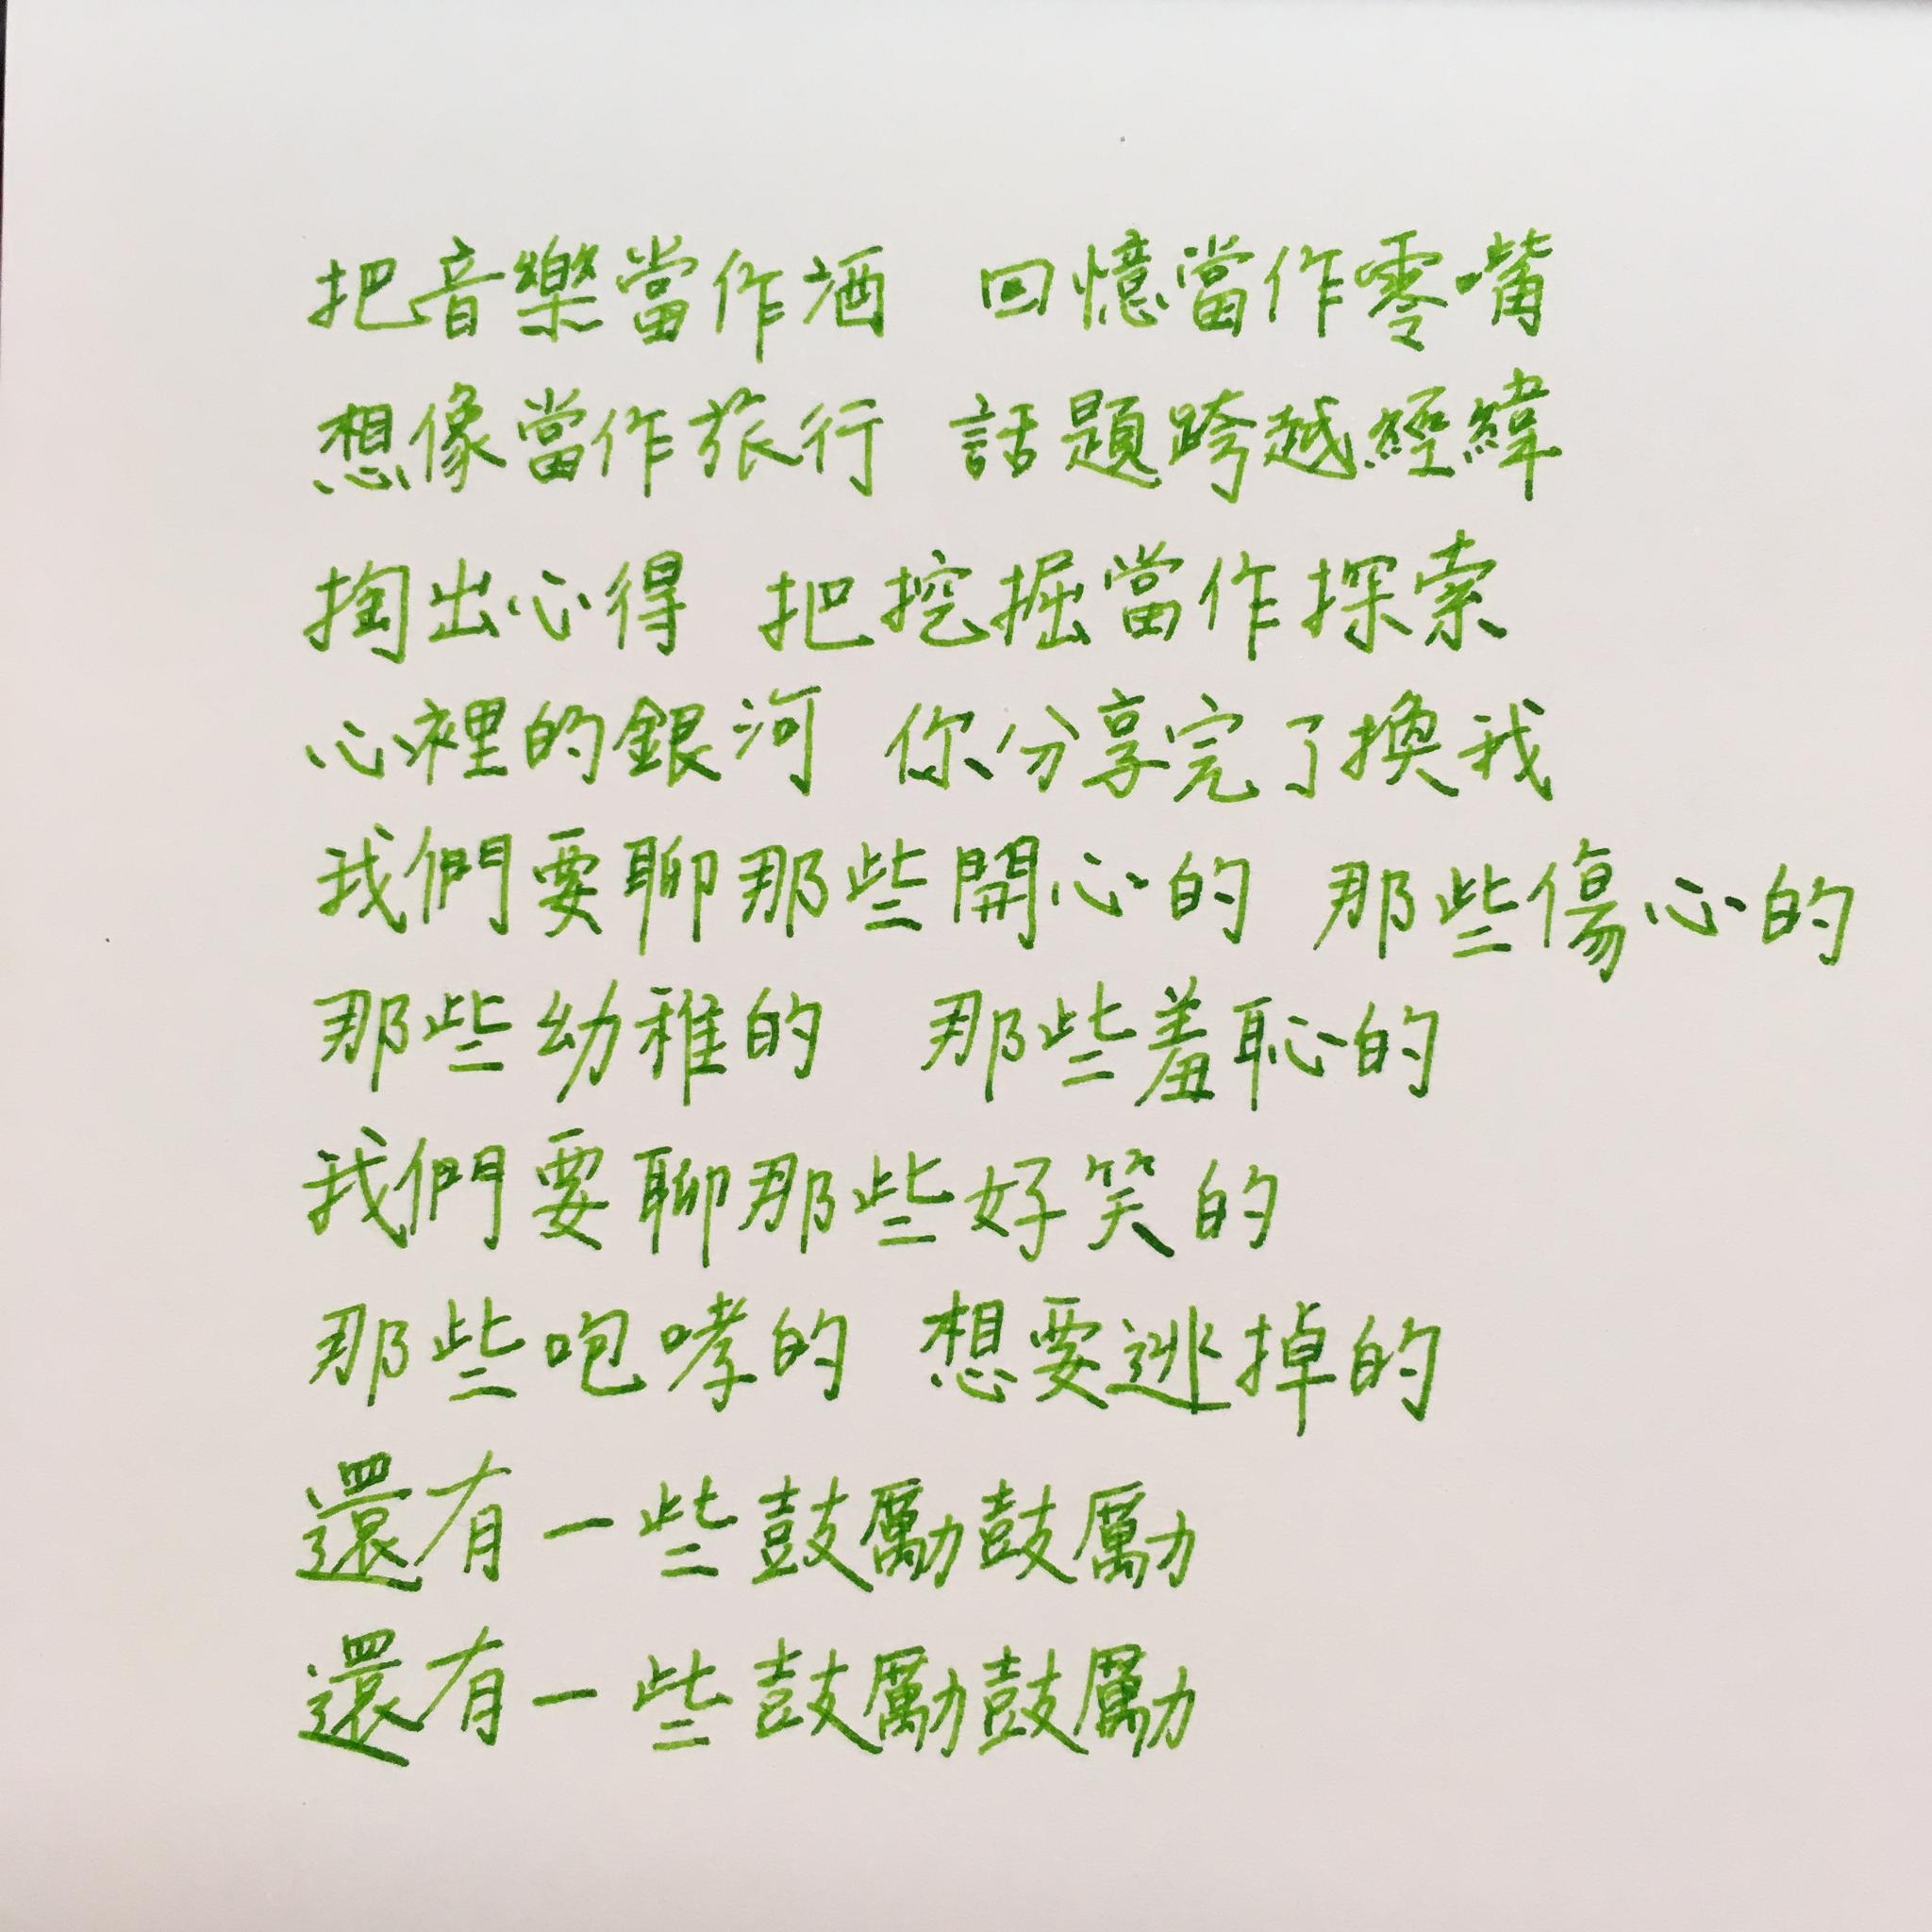 把音樂當作酒 回憶當作零嘴
想像當作旅行 話題跨越經緯
掏出心得 把挖掘當作探索
心裡的銀河 你分享完了換我
我們要聊那些開心的 那些傷心的
那些幼稚的 那些羞恥的
我們要聊那些好笑的
那些咆哮的 想要逃掉的
還有一些鼓勵鼓勵
還有一些鼓勵鼓勵